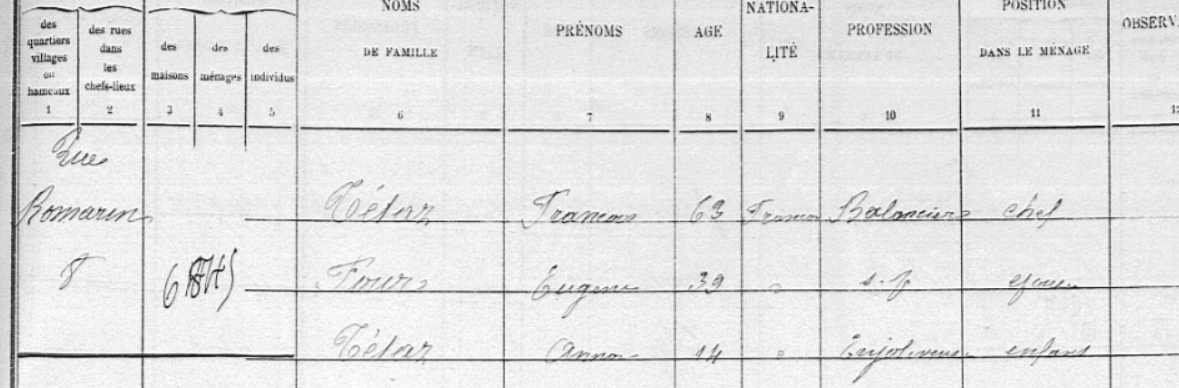 des quartiers villages ou hameaux
des rues dans les chefs-lieux
des maisons
des ménages
des individus
NOMS DE FAMILLE
PRÉNOMS
AGE
NATIONA-LITÉ
PROFESSION
POSITION DANS LE MÉNAGE
OBSERV
1 2 3 4 5 6 7 8 9 10 11 12
Rue
Romarin Tétaz François 63 France Balancier chef
8 39 s.p
Tétaz Anna 14 enfant